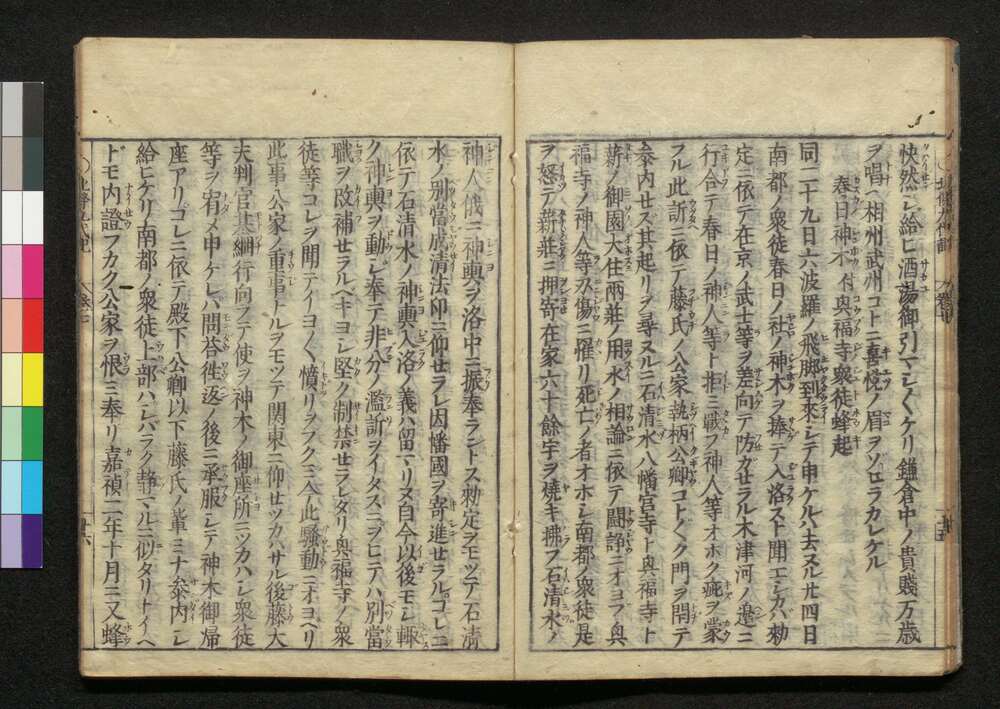 快然シ給ヒ酒湯御引マシ〱ケリ鎌倉中ノ貴賤万歳
ヲ唱ヘ相州武州コトニ喜悦ノ眉ヲソヒラカレケル
春日神木付興福寺衆徒蜂起
同二十九日六波羅ノ飛脚到來シテ申ケルハ去ヌル廿四日
南都ノ衆徒春日ノ社ノ神木ヲ捧テ入洛スト聞エシカハ勅
定ニ依テ在京ノ武士等ヲ差向テ防ガセラル木津河ノ邊ニ
行合テ春日ノ神人等ト相戰フ神人等オホク疵ヲ蒙
フル此訴ニ依テ藤氏ノ公家執柄公卿コト〲ク門ヲ閉テ
參内セス其起リヲ尋ヌルニ石清水八幡宮寺ト興福寺ト
薪ノ御園大住兩莊ノ用水ノ相論ニ依テ闘諍ニオヨフ興
福寺ノ神人等刄傷ニ罹リ死亡ノ者オホシ南都ノ衆徒是
ヲ怒テ薪莊ニ押寄在家六十餘宇ヲ燒キ拂フ石清水ノ
神人俄ニ神輿ヲ洛中ニ振奉ラントス勅定ヲモツテ石清
水ノ別當成清法印ニ仰セラレ因幡國ヲ寄進セラルコレニ
依テ石清水ノ神輿入洛ノ義ハ留マリヌ自今以後モシ輙
ク神輿ヲ動シ奉テ非分ノ濫訴ヲイタスニヲヒテハ別當
職ヲ改補セラルベキヨシ堅ク制禁セラレタリ興福寺ノ衆
徒等コレヲ聞テイヨ〱憤リヲフクミ今此騷動ニオヨベリ
此事公家ノ重事タルヲモツテ関東ニ仰セツカハサル後藤大
夫判官基綱行向フテ使ヲ神木ノ御座所ニツカハシ衆徒
等ヲ宥メ申ケレバ問荅徃返ノ後ニ承服シテ神木御歸
座アリコレニ依テ殿下公卿以下藤氏ノ輩ミナ參内シ
給ヒケリ南都ノ衆徒上部ハシバラク静マルニ似タリトイヘ
ドモ内證フカク公家ヲ恨ミ奉リ嘉禎二年十月ニ又蜂